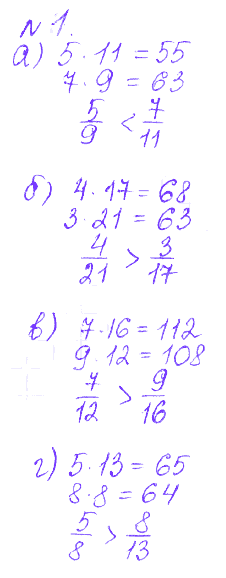 № 1.
а) 5 · 11 = 55
7 · 9 = 63
5/9 < 7/11
б) 4 · 17 = 68
3 · 21 = 63
4/21 > 3/17
в) 7 · 16 = 112
9 · 12 = 108
7/12 > 9/16
г) 5 · 13 = 65
8 · 8 = 64
5/8 > 8/13